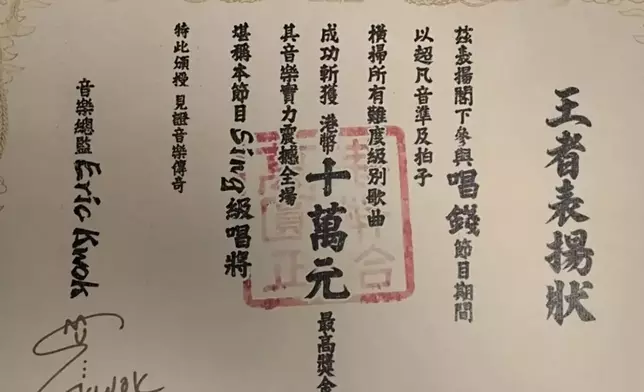 王者表揚狀
茲表揚閣下參與唱錢節目期間
以超凡音準及拍子
橫掃所有難度級別歌曲
成功斬獲 港幣十萬元 最高獎金
其音樂實力震撼全場
堪稱本節目Sing級唱將
特此頒授 見證音樂傳奇
音樂總監 Eric Kwok